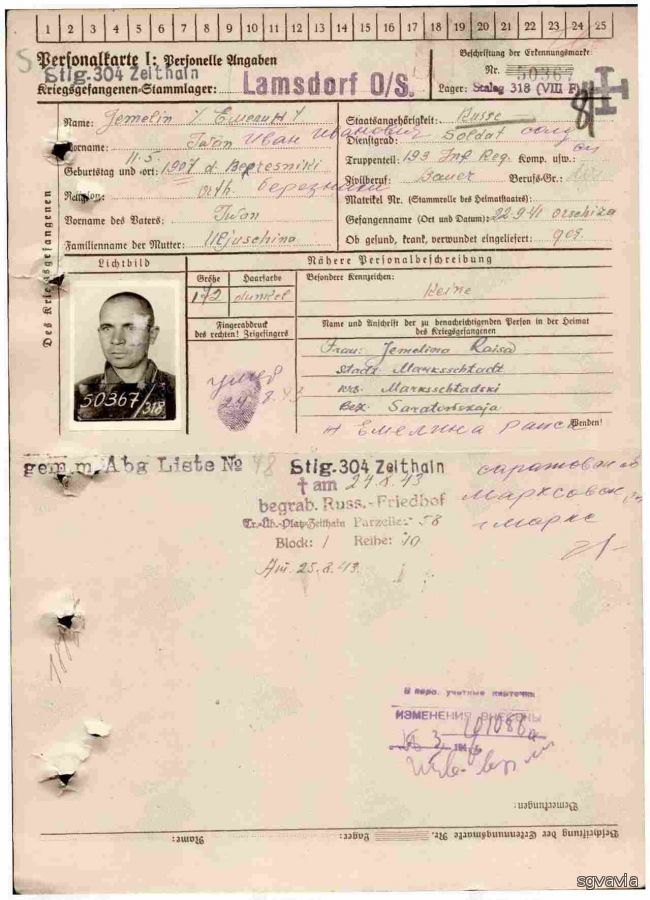 1 2 3 4 5 6 7 8 9 10 11 12 13 14 15 16 17 18 19 20 21 22 23 24 25
Personalkarte I: Personelle Angaben
Stlg. 304 Zeithain
Kriegsgefangenen-Stammlager: Lamsdorf O/S.
Beschriftung der Erkennungsmarke
Nr. 50367
Lager: Stalag 318 (VIII F)
Des Kriegsgefangenen
Name: Jemelin
Vorname: Iwan Иван Иванович
Geburtstag und -ort: 11.5. 1907
Religion: orth.
Vorname des Vaters: Iwan
Familienname der Mutter: Iljuschina
Staatsangehörigkeit: Russe
Dienstgrad: Soldat
Truppenteil: 193 Inf. Reg. Komp. usw.:
Zivilberuf: Bauer Berufs-Gr.:
Matrikel Nr. (Stammrolle des Heimatstaates):
Gefangennahme (Ort und Datum): 22.9.41 Orschiza
Ob gesund, krank, verwundet eingeliefert: ges.
Lichtbild
Nähere Personalbeschreibung
Größe Haarfarbe Besondere Kennzeichen:
172 dunkel Keine
Fingerabdruck
des rechten! Zeigefingers
Name und Anschrift der zu benachrichtigenden Person in der Heimat
des Kriegsgefangenen
Frau: Jemelina Raisa
Stadt Marksschtadt
Krs. Marksschtadski
Bez. Saratowskaja
Емелина Раиса
Wenden!
50367/318
умер
24.8.43
gem. m. Abg Liste No 48 Stlg. 304 Zeithain
† am 24.8.43
begrab. Russ.-Friedhof
Tr.-Üb.-Platz Zeithain Parzelle: 58
Block: 1 Reihe: 10
Am. 25.8.43.
г Маркс
В перс. учетные карточки
ИЗМЕНЕНИЯ ВНЕСЕНЫ
Bemerkungen:
Beschriftung der Erkennungsmarke Nr. Lager: Name:
sgvavia